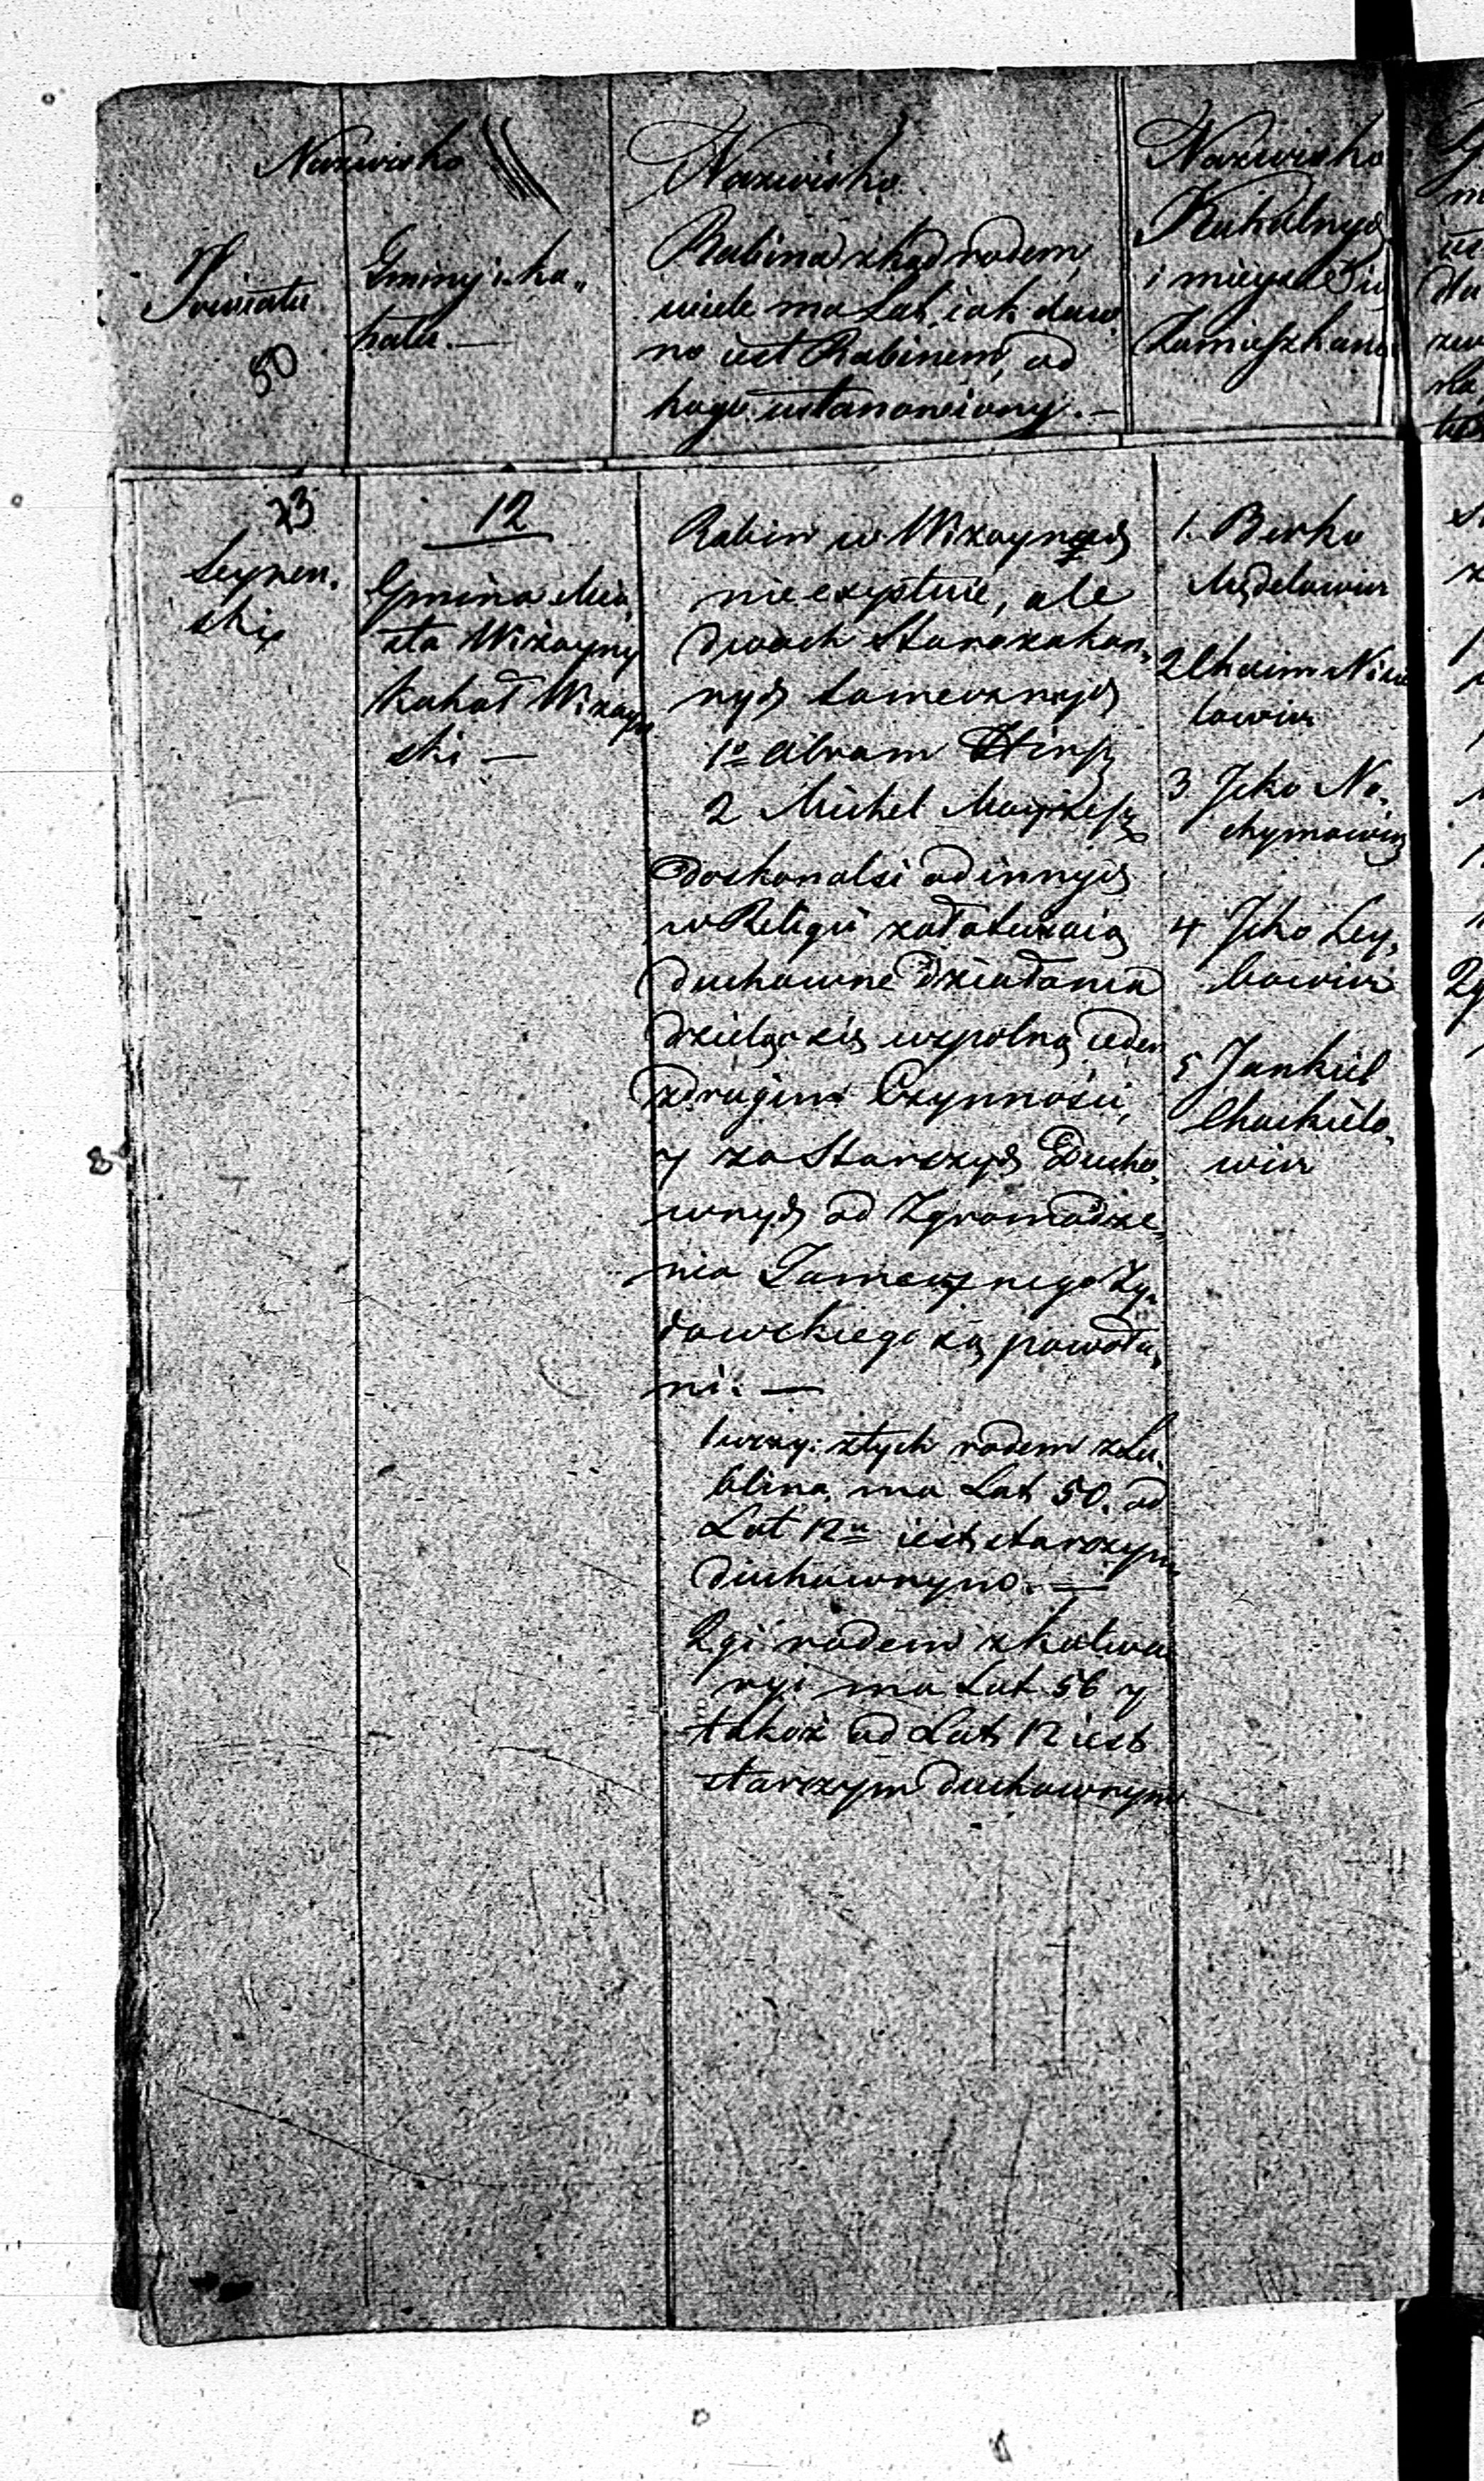 Nazwisko
Powiatu
50
Gminy i ka„
hału. —
Nazwisko
Rabina zkąd rodem,
wiele ma Lat, iak daw
no iest Rabinem, od
kogo ustanowiony. —
Nazwisko
Kahalnych
i mieysce
Zamieszkania
23
Seynen„
ski
12
Gmina Mia„
sta Wizayny
Kahał Wizayn
ski —
Rabin w Wizaynach
nie exystuie, ale
dwoch Starozakon„
nych tameznych
1o Abram Hirsz
2 Michel
doskonalsi od innych
w Religii załatwiaią
duchowne działania
dzieląc się wspolną ieden
z drugim Czynności,
y za Starszych Ducho„
wnych od Zgromadze„
nia Tamecznego Ży„
dowskiego są powoła„
ni. —
1wszy: z tych rodem z Lu„
blina, ma Lat 50. od
Lat 12u iest starszym
duchownym. —
2gi rodem z Kalwa
ryi ma Lat 56 y
takoż od Lat 12 iest
starszym duchownym
1. Berko
Mędelowicz
2 Chaim
lowicz
3 Icko No„
chymowicz
4 Icko Ley„
bowicz
5 Jankiel
Chackielo„
wicz